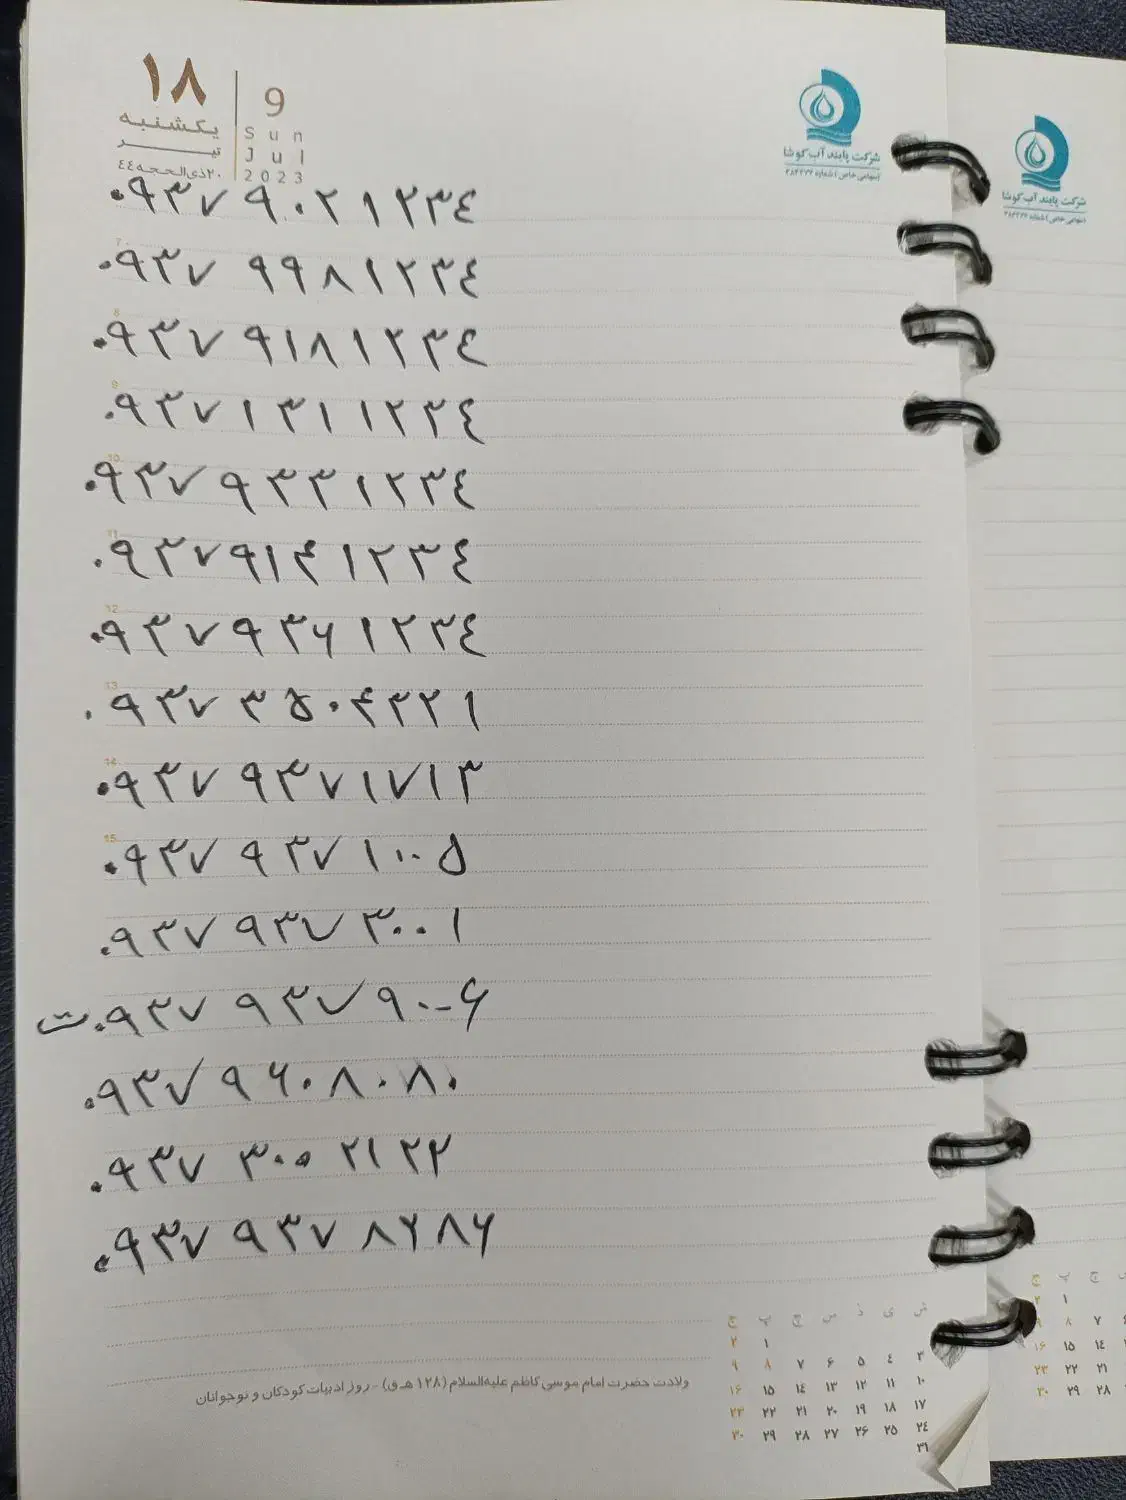 ۱۸
یکشنبه
تیر
۲۰ذی‌الحجه٤٤
9
Sun
Jul
2023
شرکت پابند آب کوشا
(سهامی خاص) شماره
شرکت پابند آب کوشا
۰۹۳۷ ۹۰۲۱۲۳٤
7
۰۹۳۷ ۹۹۸۱۲۳٤
8
۰۹۳۷ ۹۱۸۱۲۳٤
9
۰۹۳۷ ۱۳۱۱۲۳٤
10
۰۹۳۷ ۹۳۳۱۲۳٤
11
۰۹۳۷ ۹۱۴۱۲۳٤
12
۰۹۳۷ ۹۳۶۱۲۳٤
13
۰۹۳۷ ۳۵۰۴۳۲۱
14
۰۹۳۷ ۹۳۷۱۷۱۳
15
۰۹۳۷ ۹۳۷۱۰۰۵
۰۹۳۷ ۹۳۷ ۳۰۰۱
ت ۰۹۳۷ ۹۳۷ ۹۰۰۶
۰۹۳۷ ۹۶۰۸۰۸۰
۰۹۳۷ ۳۰۰ ۲۱۲۲
۰۹۳۷ ۹۳۷ ۸۶۸۶
ولادت حضرت امام موسی کاظم علیه‌السلام (۱۲۸ هـ ق) - روز ادبیات کودکان و نوجوانان
ش ی د س چ پ ج
۱ ۲
۳ ٤ ۵ ۶ ۷ ۸ ۹
۱۰ ۱۱ ۱۲ ۱۳ ۱٤ ۱۵ ۱۶
۱۷ ۱۸ ۱۹ ۲۰ ۲۱ ۲۲ ۲۳
۲٤ ۲۵ ۲۶ ۲۷ ۲۸ ۲۹ ۳۰
۳۱
چ پ ج
۱ ۲
۷ ۸ ۹
۱٤ ۱۵ ۱۶
۲۱ ۲۲ ۲۳
۲۸ ۲۹ ۳۰